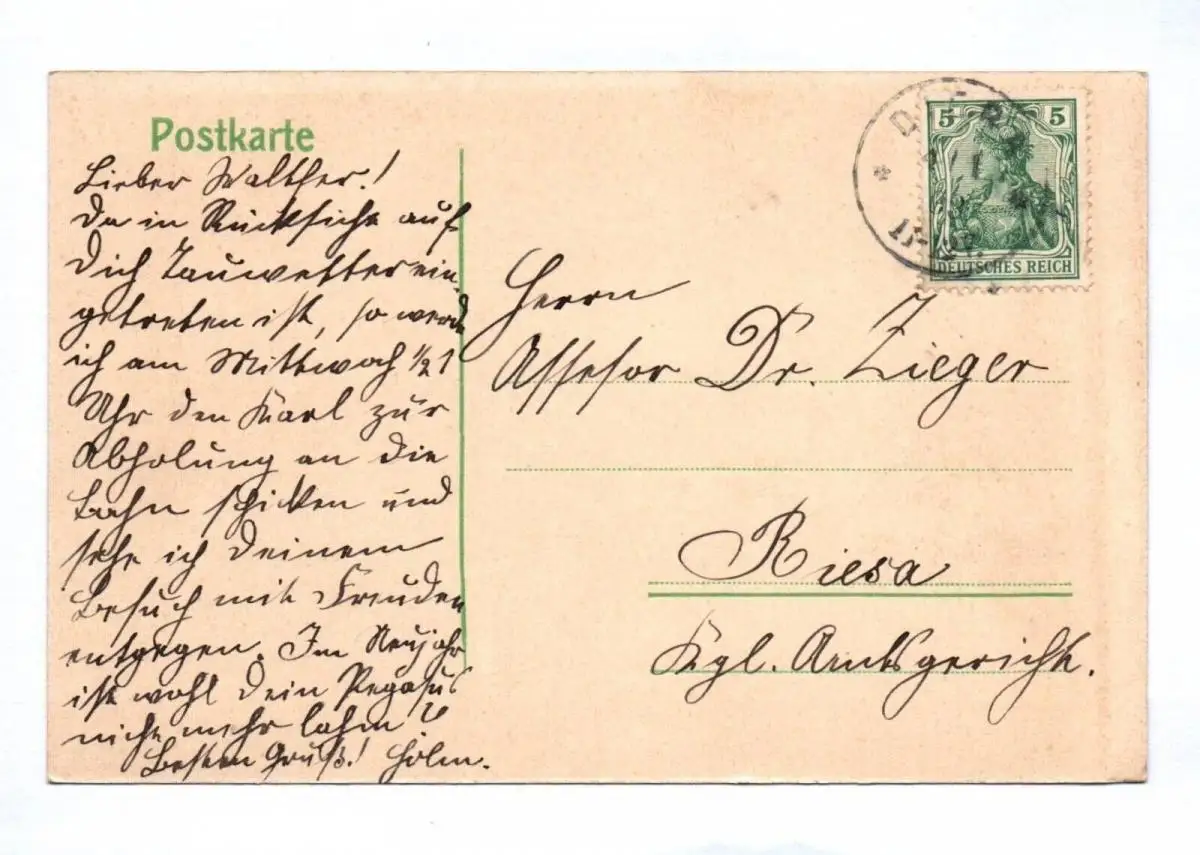 Postkarte
Lieber Walther!
Da in Rücksicht auf
Dich Tauwetter ein-
getreten ist, so werde
ich am Mittwoch ½ 1
Uhr den Karl zur
Abholung an die
Bahn schicken und
sehe ich Deinem
Besuch mit Freuden
entgegen. Im Neujahr
ist wohl dein Pegasus
nicht mehr lahm?
Besten Gruß!
5 5
DEUTSCHES REICH
Herrn
Assessor Dr. Zieger
Riesa
Kgl. Amtsgericht.